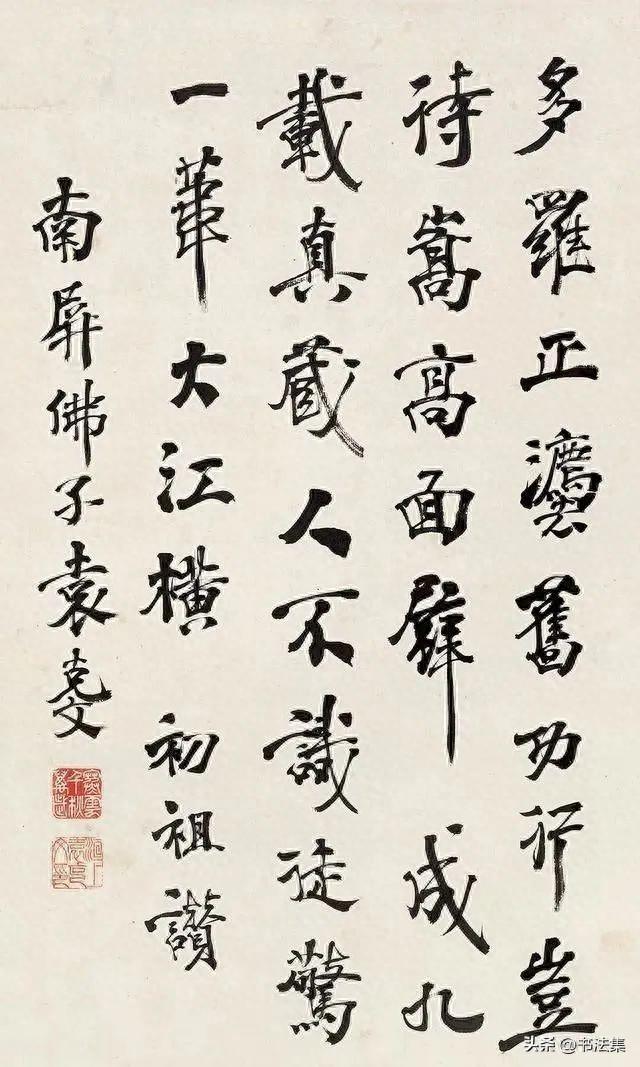 多羅正灋舊功行豈
待嵩高面壁成九
載真藏人不識徒驚
一葦大江橫 初祖讚
南屏佛子袁克文
头条 @书法集